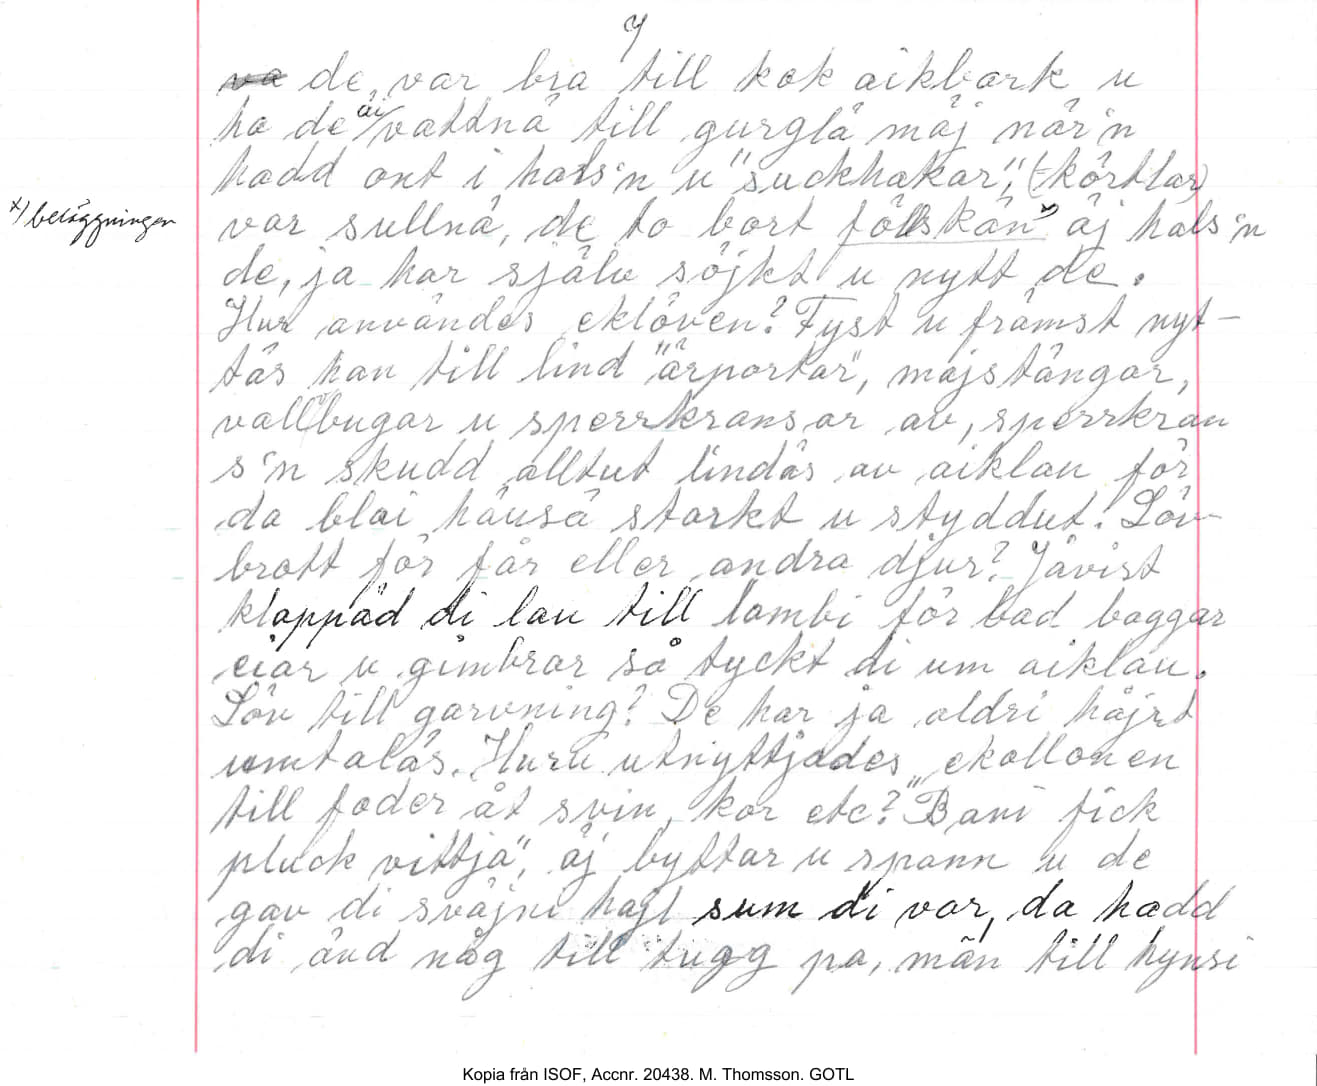 7
va de, var bra till kok aikbark u
ha de äi vattnä till gurglä mäj när'n
hadd ont i hals'n u "suckhakar", (=körtlar)
x) beläggningen
var sullnä, de to bort fölskän x) äj hals'n
de, ja har själv söjkt u nytt de.
Hur användes eklöven? Fyst u främst nyt-
täs han till lind "ärportar", majstängar,
vallbugar u sperrkransar av, sperrkran
s'n skudd alltut lindäs av aiklau för
da blai häusä starkt u styddut. Löv-
brott för får eller andra djur? Jävist
klappäd di lau till lambi för bad baggar
eiar u gimbrar så tyckt di um aiklau.
Löv till garvning? De har ja aldri håjrt
umtaläs. Huru utnyttjades ekollonen
till foder åt svin, kor etc? Bani fick
"pluck vittjä", äj byttar u spann u de
gav di sväjni hajl sum di var, da hadd
di änd någ till tugg pa, män till hynsi
Kopia från ISOF, Accnr. 20438. M. Thomsson. GOTL